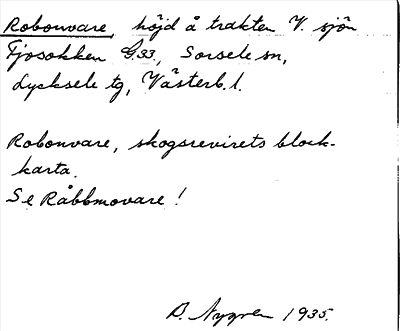 Robonvare, höjd å trakten V. sjön
Tjosokken G.33., Sorsele sn,
Lycksele tg, Västerb. l.
Robonvare, skogsrevirets block-
karta.
Se Råbbmovare!
B. Nygren 1935.